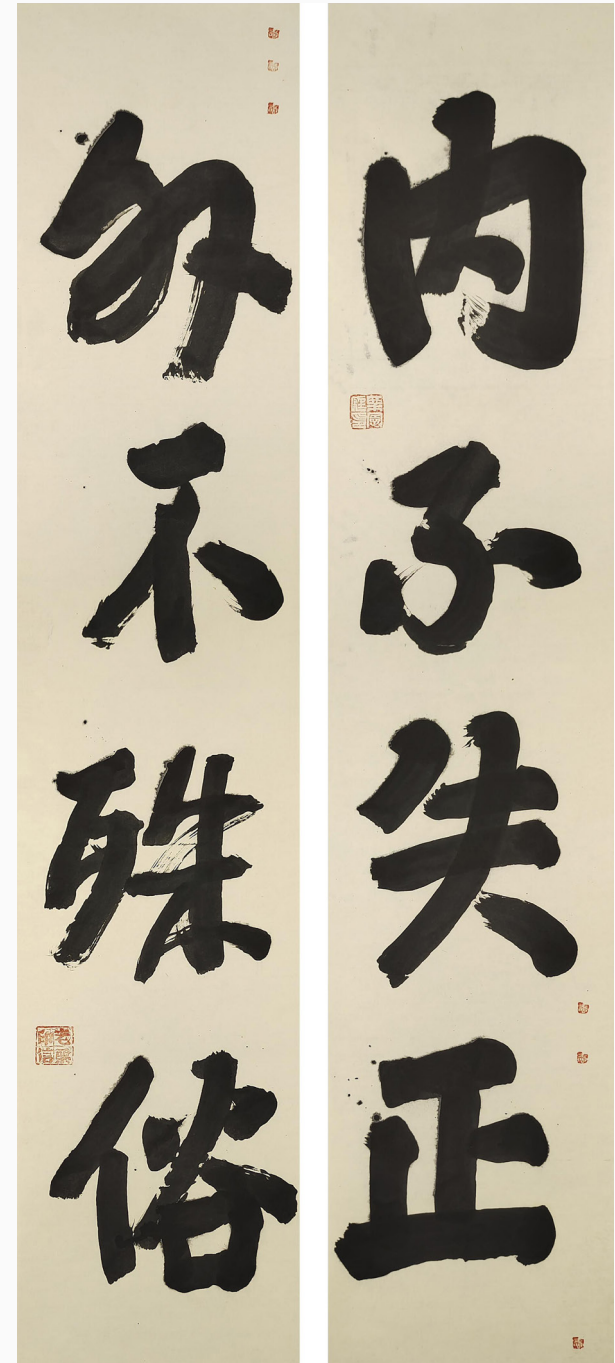 内不失正
外不殊俗